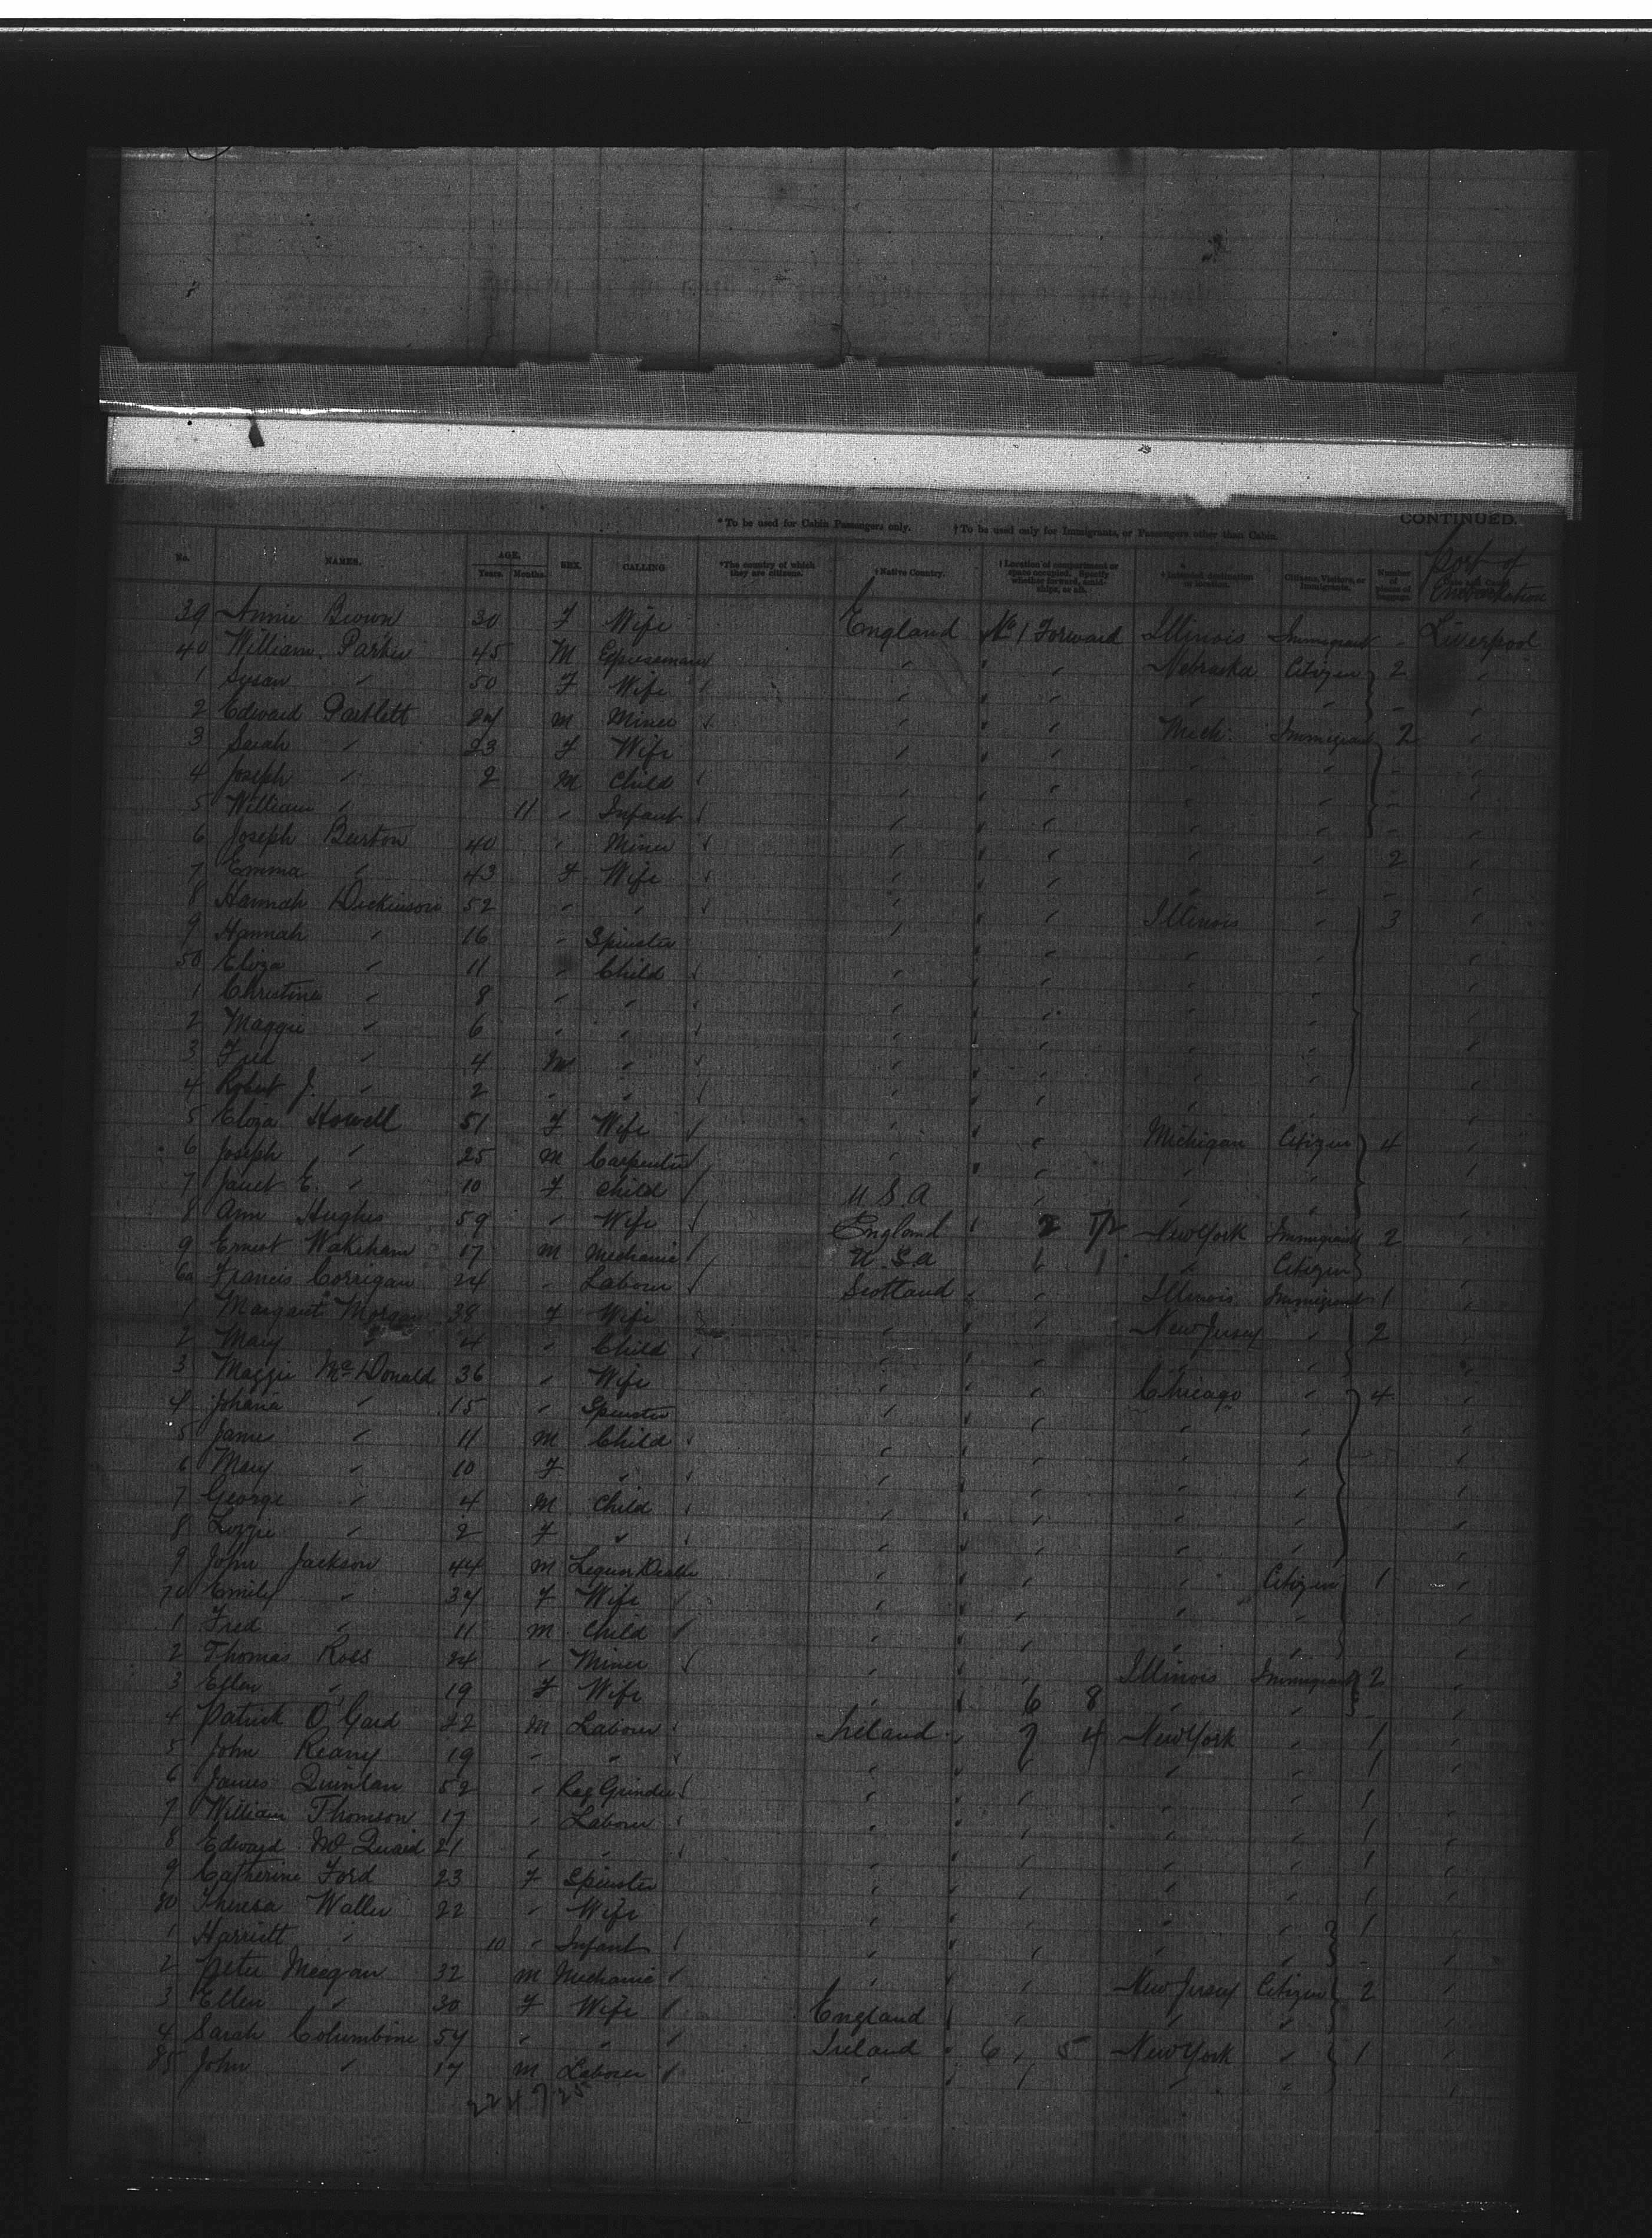 CONTINUED.
*To be used for Cabin Passengers only. †To be used only for Immigrants, or Passengers other than Cabin.
No. NAMES. AGE. Years. Months. SEX. CALLING *The country of which they are citizens. †Native Country. †Location of compartment or space occupied. †Intended destination or location. Citizens, Visitors, or Immigrants. Number of pieces of baggage. Port of Embarkation
39 Annie Brown 30 F Wife England No 1 Forward Illinois Immigrant - Liverpool
40 William Parker 45 M Expressman " " " Nebraska Citizen 2 "
1 Susan " 50 F Wife " " " " " - "
2 Edward Partlett 24 M Miner " " " Mich. Immigrant 2 "
3 Sarah " 23 F Wife " " " " " - "
4 Joseph " 2 M Child " " " " " - "
5 William " 11 " Infant " " " " " - "
6 Joseph Burton 40 " Miner " " " " " 2 "
7 Emma " 43 F Wife " " " " " - "
8 Hannah Dickinson 52 " " " " " Illinois " 3 "
9 Hannah " 16 " Spinster " " " " " "
50 Eliza " 11 " Child " " " " " "
1 Christina " 8 " " " " " " " "
2 Maggie " 6 " " " " " " " "
3 Fred " 4 M " " " " " " "
4 Robert J. " 2 " " " " " " " "
5 Eliza Howell 51 F Wife " " " Michigan Citizen 4 "
6 Joseph " 25 M Carpenter " " " " " "
7 Janet E. " 10 F Child U.S.A " " " " "
8 Ann Hughes 59 " Wife England " 2 New York Immigrant 2 "
9 Ernest Wakeham 17 M Mechanic U.S.A 1 " Citizen "
60 Francis Corrigan 24 " Labourer Scotland " " Illinois Immigrant 1 "
1 Margaret Morgan 38 F Wife " " " New Jersey " 2 "
2 Mary " 4 " Child " " " " " "
3 Maggie McDonald 36 " Wife " " " Chicago " 4 "
4 Johana " 15 " Spinster " " " " " "
5 James " 11 M Child " " " " " "
6 Mary " 10 F " " " " " " "
7 George " 4 M Child " " " " " "
8 Lizzie " 2 F " " " " " " "
9 John Jackson 44 M Liquor Dealer " " " " Citizen 1 "
70 Emily " 34 F Wife " " " " " "
1 Fred " 11 M Child " " " " " "
2 Thomas Ross 24 " Miner " " " Illinois Immigrant 2 "
3 Ellen " 19 F Wife " " 6 8 " " - "
4 Patrick O'Gard 22 M Labourer Ireland " 7 4 New York " 1 "
5 John Reany 19 " " " " " " " 1 "
6 James Quinlan 52 " Rag Grinder " " " " " 1 "
7 William Thomson 17 " Labourer " " " " " 1 "
8 Edward McQuaid 21 " " " " " " " 1 "
9 Catherine Ford 23 F Spinster " " " " " 1 "
80 Theresa Waller 22 " Wife " " " " " 1 "
1 Harriett " 10 " Infant " " " " " - "
2 Peter Meegan 32 M Mechanic " " " New Jersey Citizen 2 "
3 Ellen " 30 F Wife England " " " " "
4 Sarah Columbine 54 " " Ireland " 6 " 5 New York " 1 "
85 John " 17 M Labourer " " " " " "